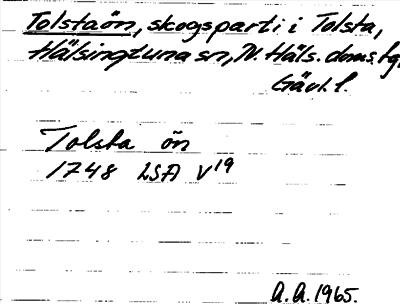 Tolstaön, skogsparti i Tolsta,
Hälsingtuna sn, N. Häls. doms. tg,
Gävl. l.
Tolsta ön
1748 LSA V19
A.A. 1965.